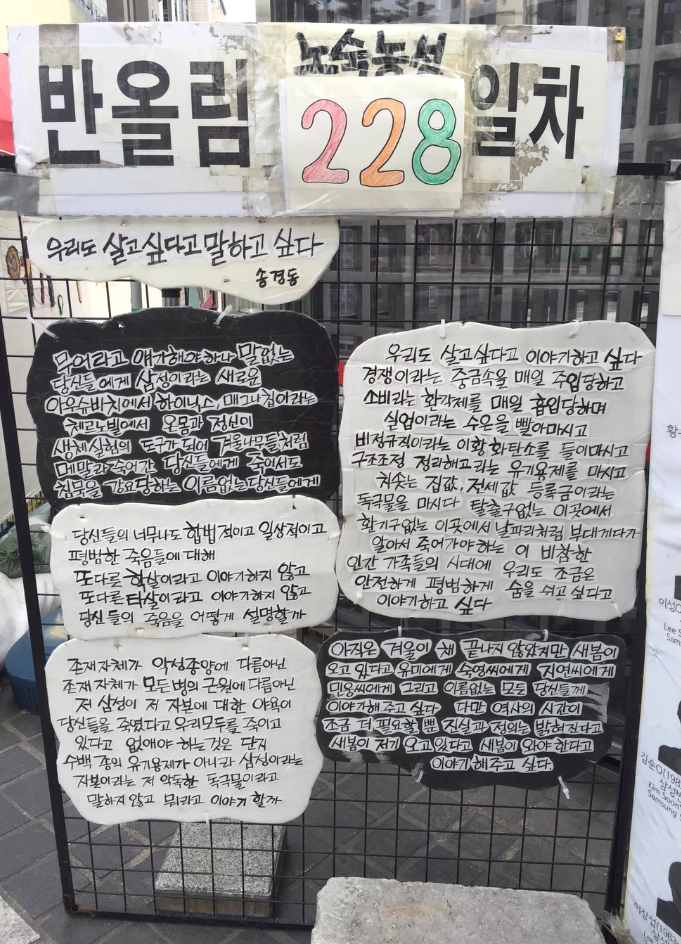 반올림 노숙농성 228 일차
우리도 살고싶다고 말하고 싶다
송경동
무어라고 얘기해야하나 말없는
당신들에게 삼성이라는 새로운
아우슈비치에서 하이닉스, 매그나칩이라는
체르노빌에서 온몸과 정신이
생체실험의 도구가 되어 겨울나무들처럼
메말라 죽어간 당신들에게 죽어서도
침묵을 강요당하는 이름없는 당신들에게
당신들의 너무나도 합법적이고 일상적이고
평범한 죽음들에 대해
또다른 학살이라고 이야기하지 않고
또다른 타살이라고 이야기하지 않고
당신들의 죽음을 어떻게 설명할까
존재자체가 악성종양에 다름아닌
존재자체가 모든병의 근원에 다름아닌
저 삼성이 저 자본에 대한 야욕이
당신들을 죽였다고 우리모두를 죽이고
있다고 없애야 하는것은 단지
수백 종의 유기용제가 아니라 삼성이라는
자본이라는 저 악독한 독극물이라고
말하지 않고 뭐라고 이야기 할까
우리도 살고싶다고 이야기하고 싶다
경쟁이라는 중금속을 매일 주입당하고
소비라는 환각제를 매일 흡입당하며
실업이라는 수은을 빨아마시고
비정규직이라는 이황화탄소를 들이마시고
구조조정 정리해고라는 유기용제를 마시고
치솟는 집값, 전세값 등록금이라는
독극물을 마시다 탈출구없는 이곳에서
환기구없는 이곳에서 날파리처럼 부대끼다가
알아서 죽어가야하는 이 비참한
인간 가족들의 시대에 우리도 조금은
안전하게 평범하게 숨을 쉬고 싶다고
이야기하고 싶다
아직은 겨울이 채 끝나지 않았지만 새봄이
오고 있다고 유미에게 숙영씨에게 지연씨에게
민웅씨에게 그리고 이름없는 모든 당신들께
이야기해 주고 싶다 다만 역사의 시간이
조금 더 필요할 뿐 진실과 정의는 밝혀진다고
새봄이 저기 오고있다고 새봄이 와야 한다고
이야기해주고 싶다
황
이성
Lee S
Sam
김순이(198
삼성
Kim Soon
Samsung S